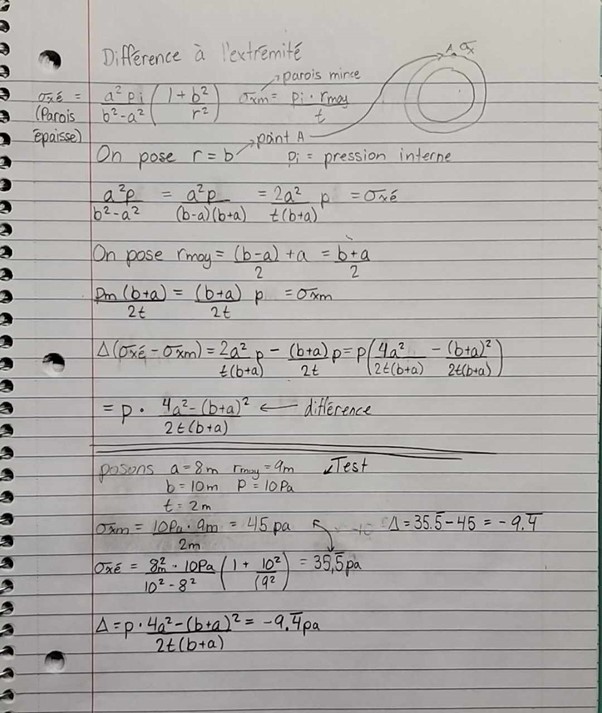 Différence à l'extrémité
Δ σx
σxé = a²pi/(b²-a²) (1+b²/r²) σxm = pi·rmoy/t
→ parois mince
(Parois épaisse)
On pose r = b → point A pi = pression interne
a²p/(b²-a²) = a²p/((b-a)(b+a)) = 2a²/(t(b+a)) p = σxé
On pose rmoy = (b-a)/2 + a = (b+a)/2
pm(b+a)/2t = (b+a)/2t p = σxm
Δ(σxé - σxm) = 2a²/(t(b+a)) p - (b+a)/2t p = p(4a²/(2t(b+a)) - (b+a)²/(2t(b+a)))
= p · (4a²-(b+a)²)/(2t(b+a)) ← différence
posons a = 8m rmoy = 9m ↙Test
b = 10m P = 10Pa
t = 2m
σxm = 10Pa·9m/2m = 45 pa Δ = 35.5̅ - 45 = -9.4̅
σxé = 8²m·10Pa/(10²-8²) (1 + 10²/(9²) = 35,5̅ pa
Δ = p · (4a²-(b+a)²)/(2t(b+a)) = -9.4̅ pa